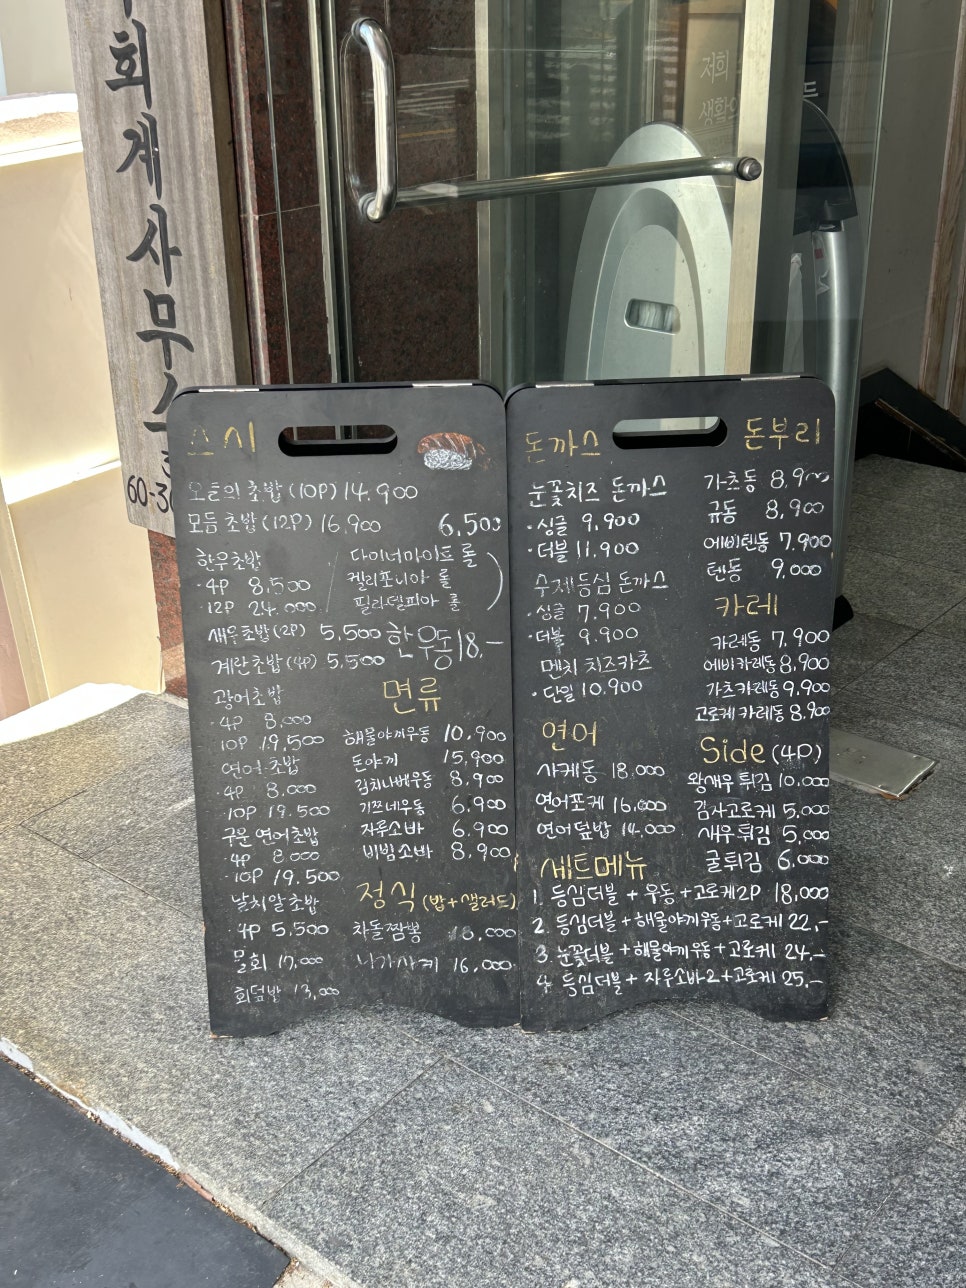 회계사무
60-3
저희
생활
드
스시
오늘의 초밥 (10P) 14.900
모듬 초밥 (12P) 16.900
한우초밥
· 4P 8,500
· 12P 24.000
새우초밥(2P) 5,500
계란초밥 (4P) 5,500
광어초밥
· 4P 8,000
10P 19,500
연어초밥
· 4P 8,000
· 10P 19.500
구운 연어초밥
· 4P 8000
· 10P 19.500
날치알초밥
· 4P 5,500
물회 17,000
회덮밥 13,000
6,500
다이너마이트 롤
켈리포니아 롤
필라델피아 롤
한우동 18.-
면류
해물야끼우동 10.900
돈야끼 15,900
김치나베우동 8.900
기쯔네우동 6.900
자루소바 6.900
비빔소바 8,900
정식 (밥+샐러드)
차돌짬뽕 18,000
니가사키 16,000
돈까스
눈꽃치즈 돈까스
· 싱글 9.900
· 더블 11.900
수제등심 돈까스
· 싱글 7.900
· 더블 9.900
멘치 치즈카츠
· 단일 10.900
연어
사케동 18.000
연어포케 16,000
연어덮밥 14.000
돈부리
가츠동 8,900
규동 8,900
에비텐동 7.900
텐동 9,000
카레
카레동 7,900
에비카레동 8,900
가츠카레동 9.900
고로케 카레동 8.900
Side (4P)
왕새우 튀김 10,000
감자고로케 5,000
새우튀김 5,000
굴튀김 6,000
세트메뉴
1. 등심더블 + 우동 + 고로케2P 18,000
2. 등심더블 + 해물야끼우동 + 고로케 22,-
3. 눈꽃더블 + 해물야끼우동 + 고로케 24,-
4. 등심더블 + 자루소바2 + 고로케 25.-